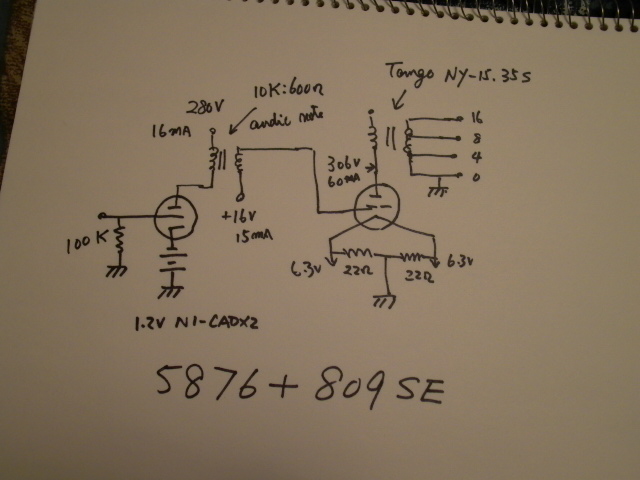 Tango NY-15.35S
10K:600Ω
audio note
280V
16mA
16
8
4
0
306V
60mA
+16V
15mA
100K
6.3V
22Ω
22Ω
6.3V
1.2V NI-CADX2
5876+809SE